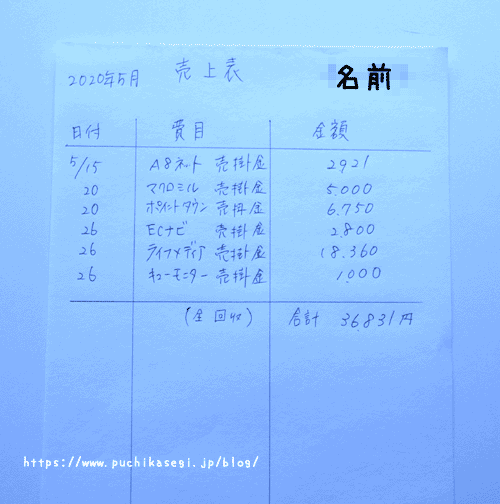 2020年5月 売上表 名前
日付 費目 金額
5/15 A8ネット 売掛金 2921
20 マクロミル 売掛金 5.000
20 ポイントタウン 売掛金 6.750
26 ECナビ 売掛金 2800
26 ライフメディア 売掛金 18.360
26 キューモニター 売掛金 1.000
(全回収) 合計 36.831円
https://www.puchikasegi.jp/blog/